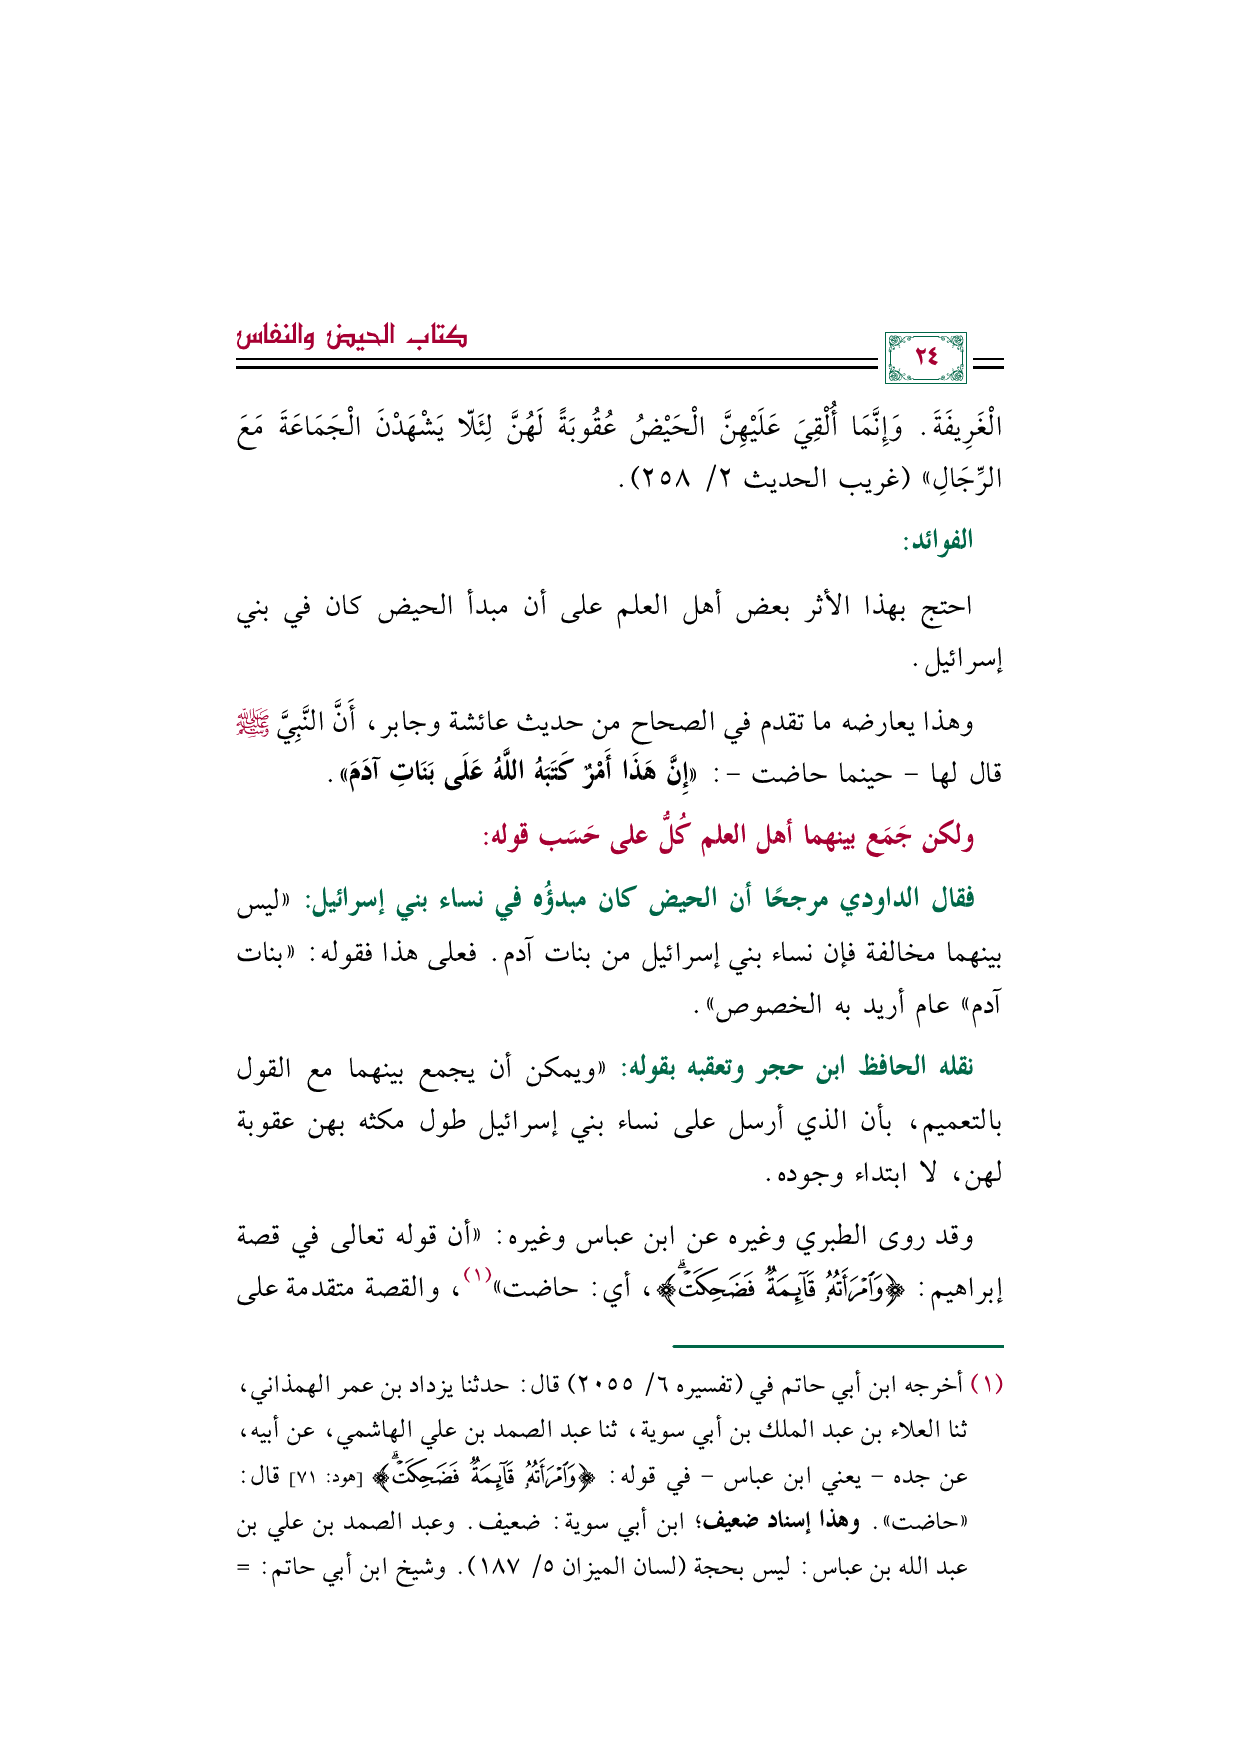 كتاب الحيض والنفاس
٢٤
الْغَرِيفَةَ. وَإِنَّمَا أُلْقِيَ عَلَيْهِنَّ الْحَيْضُ عُقُوبَةً لَهُنَّ لِئَلّا يَشْهَدْنَ الْجَمَاعَةَ مَعَ
الرِّجَالِ» (غريب الحديث ٢/ ٢٥٨).
الفوائد:
احتج بهذا الأثر بعض أهل العلم على أن مبدأ الحيض كان في بني
إسرائيل.
وهذا يعارضه ما تقدم في الصحاح من حديث عائشة وجابر، أَنَّ النَّبِيَّ ﷺ
قال لها – حينما حاضت –: «إِنَّ هَذَا أَمْرٌ كَتَبَهُ اللَّهُ عَلَى بَنَاتِ آدَمَ».
ولكن جَمَع بينهما أهل العلم كُلٌّ على حَسَب قوله:
فقال الداودي مرجحًا أن الحيض كان مبدؤُه في نساء بني إسرائيل: «ليس
بينهما مخالفة فإن نساء بني إسرائيل من بنات آدم. فعلى هذا فقوله: «بنات
آدم» عام أريد به الخصوص».
نقله الحافظ ابن حجر وتعقبه بقوله: «ويمكن أن يجمع بينهما مع القول
بالتعميم، بأن الذي أرسل على نساء بني إسرائيل طول مكثه بهن عقوبة
لهن، لا ابتداء وجوده.
وقد روى الطبري وغيره عن ابن عباس وغيره: «أن قوله تعالى في قصة
إبراهيم: ﴿وَٱمۡرَأَتُهُۥ قَآئِمَةٞ فَضَحِكَتۡۗ﴾، أي: حاضت»(١)، والقصة متقدمة على
(١) أخرجه ابن أبي حاتم في (تفسيره ٦/ ٢٠٥٥) قال: حدثنا يزداد بن عمر الهمذاني،
ثنا العلاء بن عبد الملك بن أبي سوية، ثنا عبد الصمد بن علي الهاشمي، عن أبيه،
عن جده – يعني ابن عباس – في قوله: ﴿وَٱمۡرَأَتُهُۥ قَآئِمَةٞ فَضَحِكَتۡۗ﴾ [هود: ٧١] قال:
«حاضت». وهذا إسناد ضعيف؛ ابن أبي سوية: ضعيف. وعبد الصمد بن علي بن
عبد الله بن عباس: ليس بحجة (لسان الميزان ٥/ ١٨٧). وشيخ ابن أبي حاتم: =